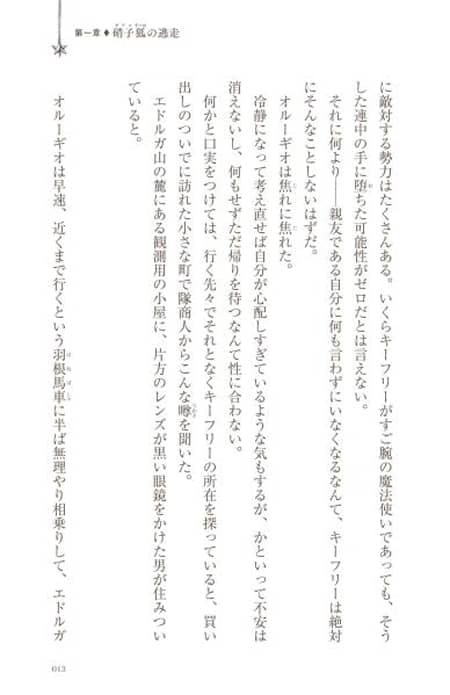 第一章◆硝子狐の逃走
に敵対する勢力はたくさんある。いくらキーフリーがすご腕の魔法使いであっても、そう
した連中の手に堕ちた可能性がゼロだとは言えない。
それに何より――親友である自分に何も言わずにいなくなるなんて、キーフリーは絶対
にそんなことしないはずだ。
オルーギオは焦れに焦れた。
冷静になって考え直せば自分が心配しすぎているような気もするが、かといって不安は
消えないし、何もせずただ帰りを待つなんて性に合わない。
何かと口実をつけては、行く先々でそれとなくキーフリーの所在を探っていると、買い
出しのついでに訪れた小さな町で隊商人からこんな噂を聞いた。
エドルガ山の麓にある観測用の小屋に、片方のレンズが黒い眼鏡をかけた男が住みつい
ていると。
オルーギオは早速、近くまで行くという羽根馬車に半ば無理やり相乗りして、エドルガ
013